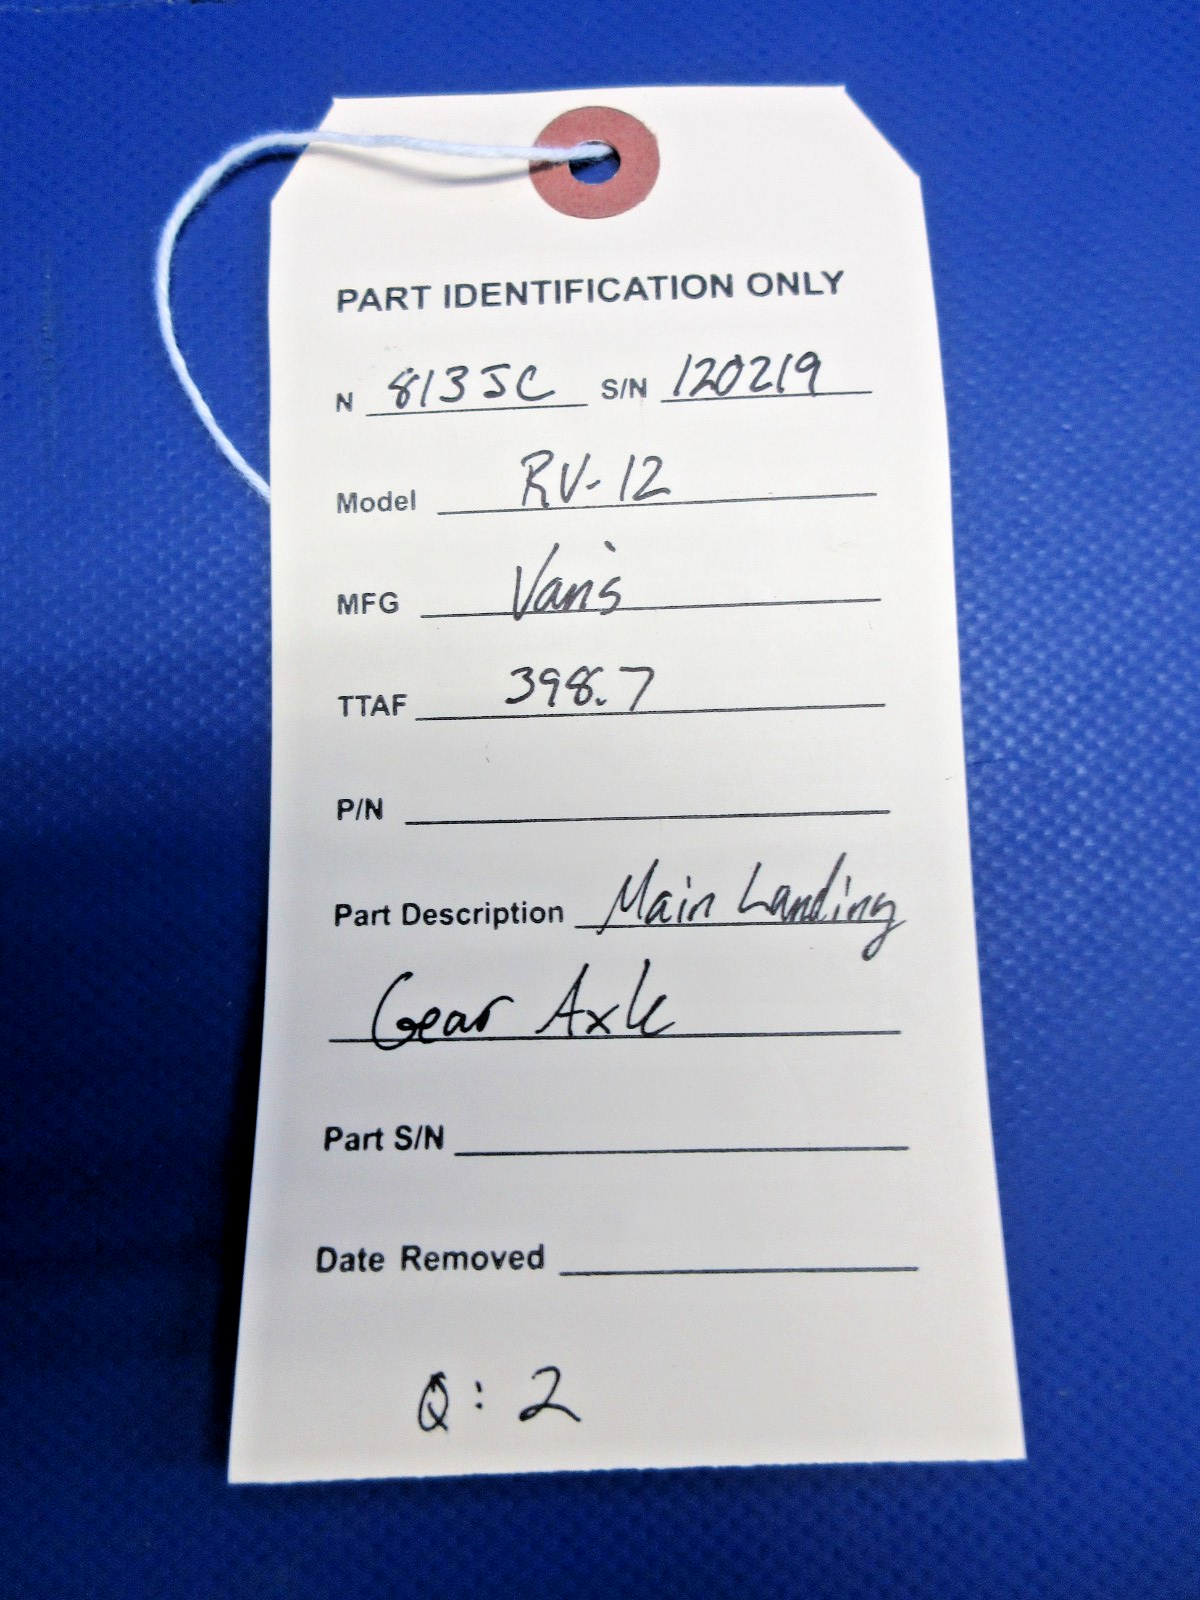 PART IDENTIFICATION ONLY
N 813JC S/N 120219
Model RV-12
MFG Van's
TTAF 398.7
P/N
Part Description Main Landing
Gear Axle
Part S/N
Date Removed
Q: 2